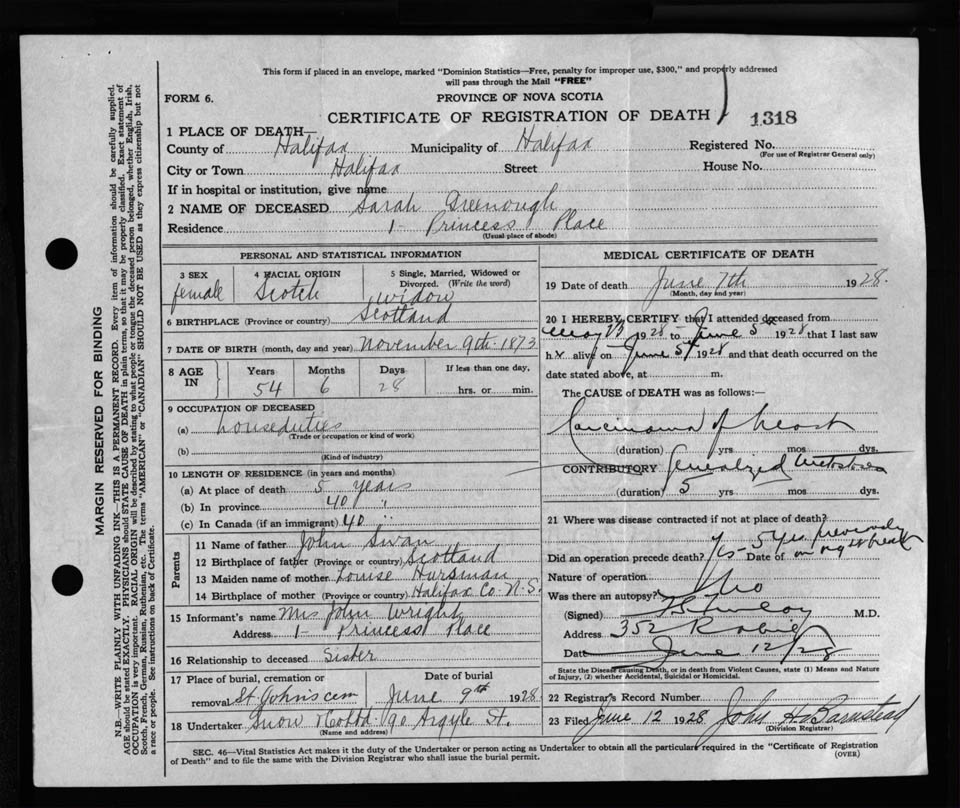 This form if placed in an envelope, marked "Dominion Statistics—Free, penalty for improper use, $300," and properly addressed
will pass through the Mail "FREE"
FORM 6.
PROVINCE OF NOVA SCOTIA
CERTIFICATE OF REGISTRATION OF DEATH
1318
1 PLACE OF DEATH—
County of Halifax Municipality of Halifax Registered No.
(For use of Registrar General only)
City or Town Halifax Street House No.
If in hospital or institution, give name
2 NAME OF DECEASED Sarah Greenough
Residence 1- Princess Place
(Usual place of abode)
PERSONAL AND STATISTICAL INFORMATION
3 SEX 4 RACIAL ORIGIN 5 Single, Married, Widowed or
Divorced. (Write the word)
female Scotch widow
6 BIRTHPLACE (Province or country) Scotland
7 DATE OF BIRTH (month, day and year) November 9th-1873
8 AGE IN Years Months Days If less than one day,
54 6 28 hrs. or min.
9 OCCUPATION OF DECEASED
(a) houseduties
(Trade or occupation or kind of work)
(b)
(Kind of industry)
10 LENGTH OF RESIDENCE (in years and months)
(a) At place of death 5 years
(b) In province 40 "
(c) In Canada (if an immigrant) 40 "
Parents
11 Name of father John Swan
12 Birthplace of father (Province or country) Scotland
13 Maiden name of mother Louise
14 Birthplace of mother (Province or country) Halifax Co-N-S.
15 Informant's name Mrs John Wright
Address 1- Princess Place
16 Relationship to deceased Sister
17 Place of burial, cremation or Date of burial
removal St. Johns cem June 9th 1928
18 Undertaker Snow & Co Ltd. 90 Argyle St.
(Name and address)
MEDICAL CERTIFICATE OF DEATH
19 Date of death June 7th 1928.
(Month, day and year)
20 I HEREBY CERTIFY that I attended deceased from
1928 to June 5th 1928 that I last saw
h alive on June 5/1928 and that death occurred on the
date stated above, at m.
The CAUSE of DEATH was as follows:—
Carcinoma of
(duration) yrs mos dys.
CONTRIBUTORY Generalized
(duration) 5 yrs mos dys.
21 Where was disease contracted if not at place of death?
Did an operation precede death? Yes - Date of 5 yrs previously
on right breast
Nature of operation
Was there an autopsy? No
(Signed) M.D.
Address 352 Robie
Date June 12/28
State the Disease causing Death, or in death from Violent Causes, state (1) Means and Nature
of Injury, (2) whether Accidental, Suicidal or Homicidal.
22 Registrar's Record Number
23 Filed June 12 1928 John H. Barnstead
(Division Registrar)
SEC. 46—Vital Statistics Act makes it the duty of the Undertaker or person acting as Undertaker to obtain all the particulars required in the "Certificate of Registration
of Death" and to file the same with the Division Registrar who shall issue the burial permit.
(OVER)
MARGIN RESERVED FOR BINDING
N.B.—WRITE PLAINLY WITH UNFADING INK—THIS IS A PERMANENT RECORD. Every item of information should be carefully supplied.
AGE should be stated EXACTLY. PHYSICIANS should STATE CAUSE OF DEATH in plain terms, so that it may be properly classified. Exact statement of
OCCUPATION is very important. RACIAL ORIGIN will be described by stating to what people or tongue the deceased person belonged, whether English, Irish,
Scotch, French, German, Russian, Ruthenian, etc. The terms "AMERICAN" or "CANADIAN" SHOULD NOT BE USED as they express citizenship but not
a race or people. See instructions on back of Certificate.